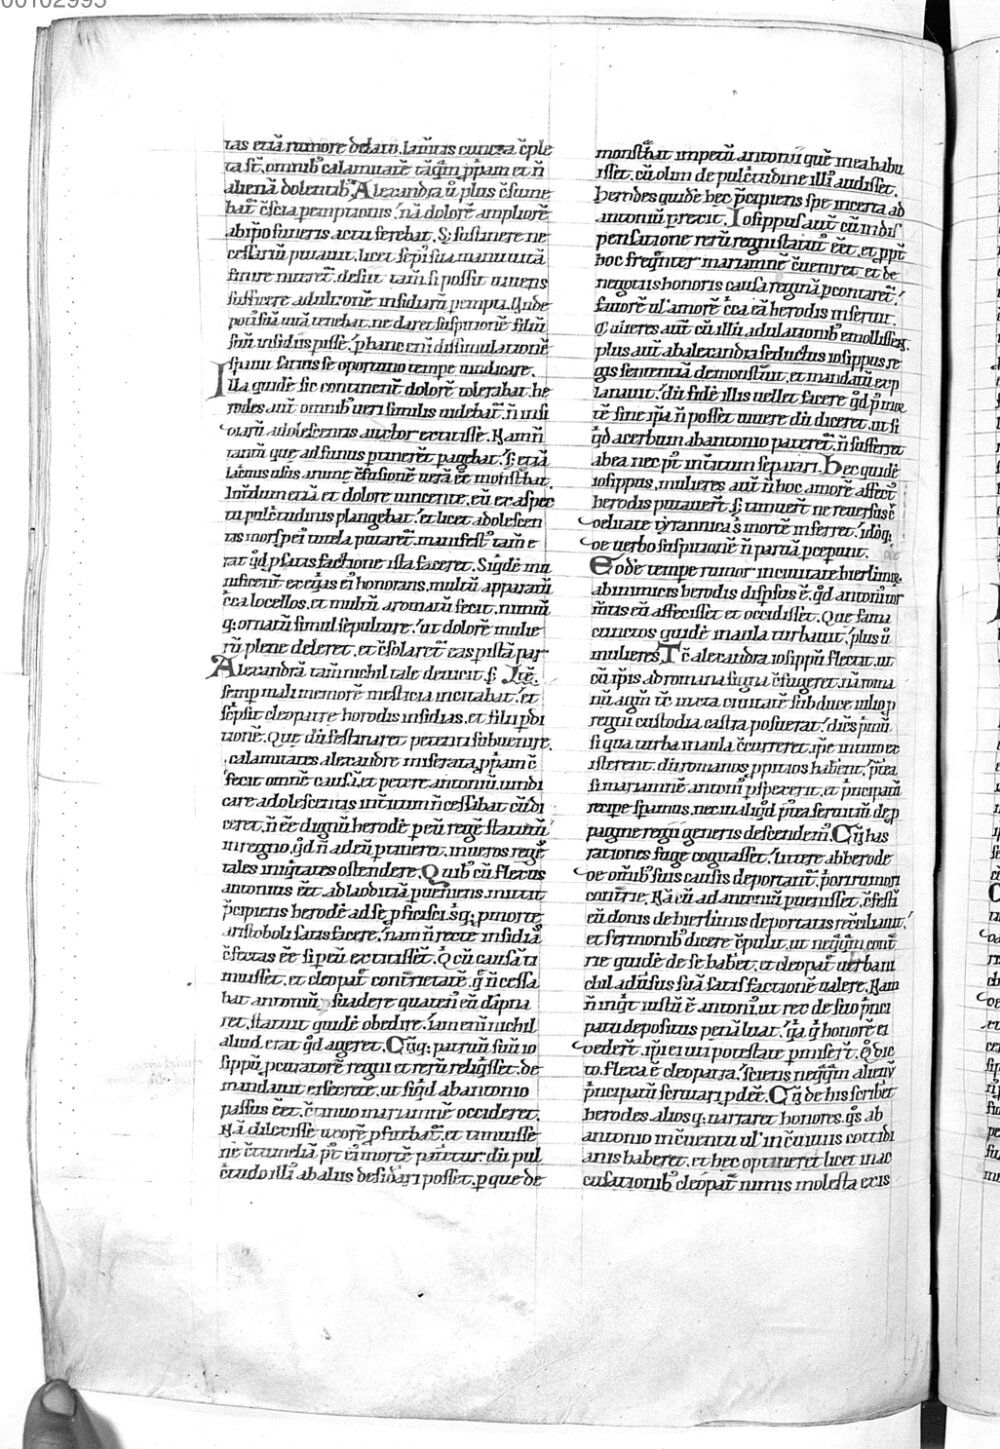 00102995
tas etiā rumore delatū. lam̄tis cuncta c̄ple
ta st̄. omnib; calamitatē tāq̄m p̄pam et n̄
alienā dolentib;. Alexandra ū plus c̄sume
bat̄ c̄scia pemptionis. nā dolorē ampliorē
ab ipso funeris actu ferebat. S; sustinere ne
cessariū putauit. licet sepi sua manu uitā
finire uitā
sufficere ad ultionē insidiarū pempti. Unde
potiꝰ suā uitā tenebat. ne daret suspitionē filiū
suū insidiis pisse. p hanc enī dissimulationē
ipsum satius se oportuno tempe uindicare.
Illa quidē sic continent̄ dolorē tolerabat. he
rodes aut̄ omnib; ueri similis uidebat̄. n̄ insi
diarū adolescentis auctor extitisse. Nam n̄
tantū que ad funus ptinerēt pagebat. s; etiā
lacrimis usus anime c̄fusionē uerā eē monstbat.
In idum etiā et dolore uincente. cū ex aspec
tu pulcritudinis plangebat. et licet adolescen
tis mors pei tutela putaret̄. manifestū tam̄ e
rat qd p satisfactione ista faceret. Siqdē mu
nificentē exeqias eiꝰ honorans. multū apparatū
c̄ca locellos. et multū aromatū fecit. nimiū
q; ornatū simul sepulture. ut dolorē mulie
rū plene deleret. et c̄solaret̄ eas p istā par
Alexandrā tam̄ nichil tale deuicit s;
semp mali memorē mesticia incitabat. et
sc̄psit cleopatre herodis insidias. et filii pdi
tionē. Que dū festinaret petenti subuenire.
calamitates alexandre miserata. p̄pam c̄
fecit omnē causā. et petere antoniū. uindi
care adolescentis int̄itum n̄ cessabat cū di
ceret. n̄ eē dignū herodē p eū regē statutū
in regno. qd n̄ ad eū ptineret. in ueros reges
tales iniqitates ostendere. Quib; cū flexus
antonius eēt. ad laoditiā pueniens. mittit
p̄cipiens herodē ad se pficisci. sq; p morte
aristoboli satisfacere. nam n̄ recte insidiā
c̄fectas eē si p eū extitisset. Q̄ cū causā ti
muisset. et cleopat̄ contrietatē. q̄ n̄ cessa
bat antoniū suadere quatenꝰ eū dāpna
ret. statuit quidē obedire. iam enī nichil
aliud erat qd ageret. Cūq; patruū suū io
sippū pcuratorē regni et rerū reliqisset. de
mandauit ei secrete. ut siqd ab antonio
passus eēt. c̄tinuo mariamnē occideret.
Nā dilexisse uxorē pfitebat̄. et timuisse
ne c̄tumeliā p̄t eiꝰ mortē pateretur. dū pul
critudo illiꝰ ab aliis desidari posset. p que de
monstbat impetū antonii quē in ea habu
isset. cū olim de pulcritudine illiꝰ audisset.
herodes quidē hec p̄cipiens spe incerta ad
antoniū prexit. Iosippus aut̄ cū in dis
pensatione rerū regni statutꝰ eēt. et ppt̄
hoc frequnter mariamnē c̄ueniret. et de
negotiis honoris causa reginā pcontaret̄.
fauorē ul' amorē c̄ca eā herodis inseruit.
q; mulieres aut̄ cū illū adulationib; emollissēt.
plus aut̄ ab alexandra seductus iosippus. re
gis sententiā demonstrauit. et mandatū exp
lanauit. dū fidē illis uellet facere qd p̄ amo
rē sine ipa n̄ posset uiuere dū diceret. ut si
qd acerbum ab antonio pateret̄. n̄ sufferret
ab ea nec p̄t int̄itum separari. Hec quidē
iosippus. mulieres aut̄ n̄ hoc amore affectū
herodis putauert̄. s; timuert̄ ne reuersus c̄
deliitate tyrannica sꝰ mortē inferret. idoq;
de uerbo suspitionē n̄ paruā pcepunt.
Eodē tempe rumor in ciuitate hierlimoꝝ
ab inimicis herodis dispsus ē. qd antoniꝰ tor
m̄tis eū affecisset et occidisset. Que fama
cunctos quidē in aula turbauit. plus ū
mulieres. Tc̄ alexandra iosippū flectit. ut
cū ipis ad romana signa c̄fugeret. nā roma
nū agm̄ tc̄ iuxta ciuitatē sub duce iulio p
regni custodia castra posuerat. dic̄s primū
si qua turba in aula c̄curreret. ipe in tuto ex
isterent. dū romanos ppitios habent. p̄rea
si mariamnē antoniꝰ pspexerit. et p̄ncipatū
recipe speramus. nec in aliqd p̄rea seruitiū de p
pagine regii generis descendemꝰ. Cūq; has
rationes fuge cogitasset. littere ab herode
de omib; suis causis deportant̄. priori rumori
contrie. Nā cū ad antoniū puenisset. c̄festi
eū donis de hierlimis deportatis rec̄ciliauit.
et sermonib; dicere c̄pulit. ut neq̄q̄m cont̄
rie quidē de se haberet. et cleopat̄ uerba ni
chil adūsus suā satisfactionē ualere. Nam
n̄ inqt iustū ē antoniꝰ. ut rex de suo p̄nci
patu depositus penā luat. qa q̄ honorē ei
dedert̄. ipi ei uti potestate pmisert̄. Q̄ dic
to. flexa ē cleopatra. sciens neq̄q̄m alienū
p̄ncipatū scrutari pdeē. Cūq; de his scriberet
herodes. alios q; narraret honores. qs ab
antonio in c̄uentu ul' in c̄uiuiis cottidi
anis haberet. et hec optineret licet in ac
cusationib; cleopat̄ nimis molesta exis